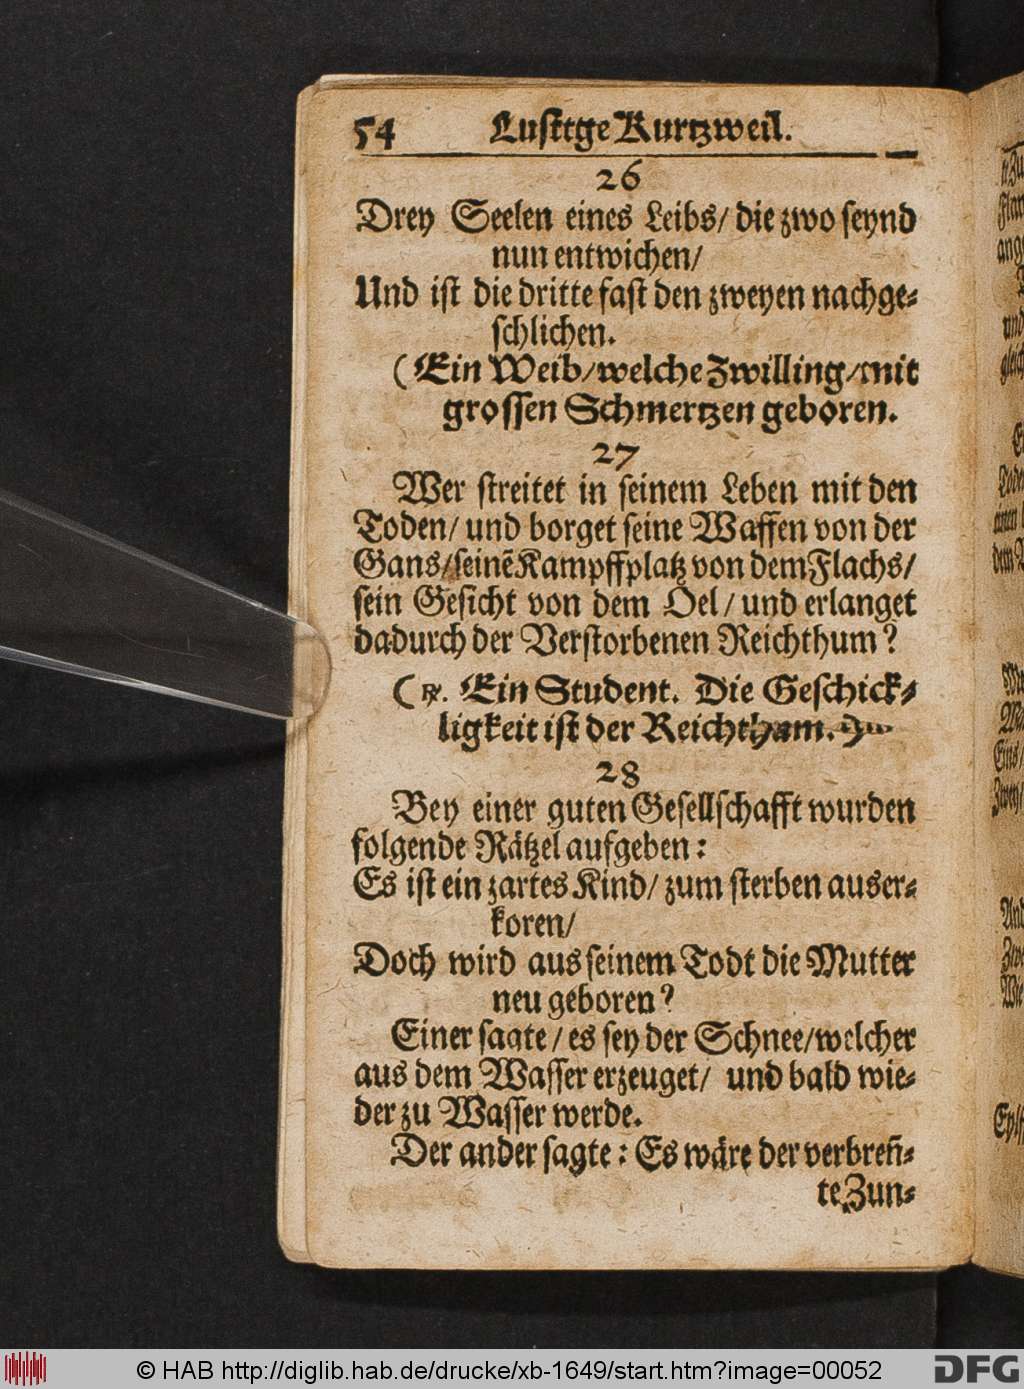 54 Lusttge Kurtzweil.
26
Drey Seelen eines Leibs/ die zwo seynd
nun entwichen/
Und ist die dritte fast den zweyen nachge-
schlichen.
(Ein Weib/welche Zwilling/mit
grossen Schmertzen geboren.
27
Wer streitet in seinem Leben mit den
Toden/ und borget seine Waffen von der
Gans/seinẽ Kampffplatz von dem Flachs/
sein Gesicht von dem Oel/ und erlanget
dadurch der Verstorbenen Reichthum?
(℞. Ein Student. Die Geschick-
ligkeit ist der Reichthum.
28
Bey einer guten Gesellschafft wurden
folgende Rätzel aufgeben:
Es ist ein zartes Kind/ zum sterben auser-
koren/
Doch wird aus seinem Todt die Mutter
neu geboren?
Einer sagte/ es sey der Schnee/welcher
aus dem Wasser erzeuget/ und bald wie-
der zu Wasser werde.
Der ander sagte: Es wäre der verbreñ-
te Zun-
© HAB http://diglib.hab.de/drucke/xb-1649/start.htm?image=00052
DFG